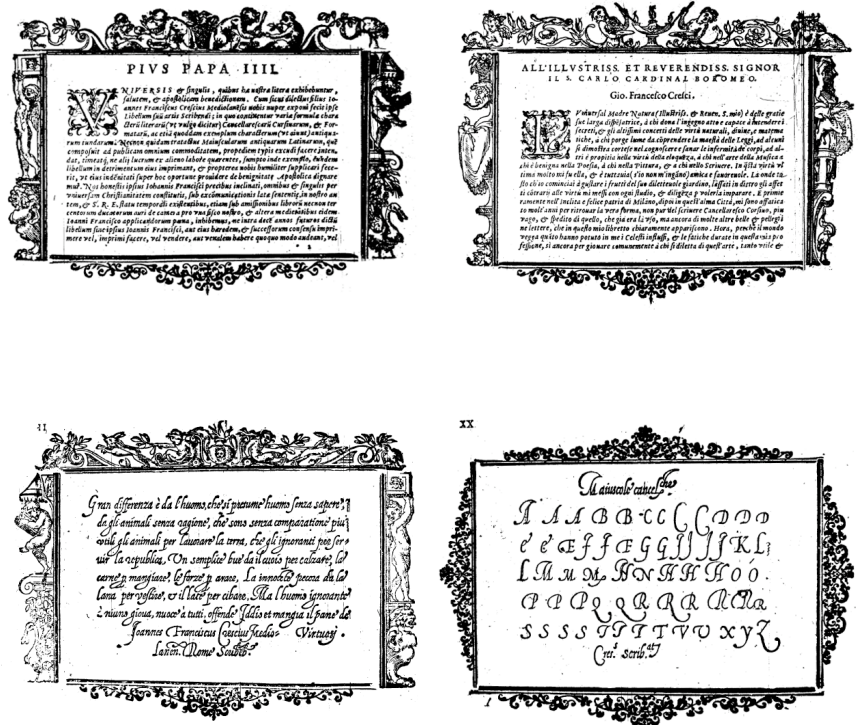 PIVS PAPA IIII.
VNIVERSIS & singulis, quibus has nostra litera exhibebuntur,
salutem, & apostolicam benedictionem. Cum sicut dilectus filius Io-
annes Franciscus Crescius Mediolanensis nobis nuper exponi fecit ipse
Libellum suæ artis Scribendi; in quo continentur varia formula chara
cterū literarū (vt vulgo dicitur) Cancellarescarū Cursiuarum, & For-
matarū, ac etiā quoddam exemplum characterum (vt aiunt) antiqua-
rum tundarum. Necnon quidam tractatus Maiuscularum antiquarum Latinarum, quē
composuit ad publicam omnium commoditatem, propediem typis excudi facere inten-
dat, timeatq, ne alij lucrum ex alieno labore quærentes, sumpto inde exemplo, eundem
libellum in detrimentum eius imprimant, & propterea nobis humiliter supplicari fece-
rit, vt eius indēnitati super hoc oportune prouidere de benignitate Apostolica dignare
mur. Nos honestis ipsius Iohannis Francisci precibus inclinati, omnibus & singulis per
vniuersam Christianitatem constitutis, sub excōmunicationis lata sententia, in nostro au
tem, & S. R. E. statu temporali existentibus, etiam sub amissionibus librorū necnon ter
centorum ducatorum auri de camera pro vna nostro, & altera medietatibus eidem
Ioanni Francisco applicandorum pœna, inhibemus, ne intra decē annos futuros dictū
libellum sine ipsius Ioannis Francisci, aut eius hæredum, & successorum consensu impri-
mere vel, imprimi facere, vel vendere, aut venalem habere quoquo modo audeant, vel
ALL'ILLVSTRISS. ET REVERENDISS. SIGNOR
IL S. CARLO CARDINAL BORROMEO.
Gio. Francesco Cresci.
Vniuersal Madre Natura (Illustriss. & Reuer. S. mio) è delle gratie
sue larga dispēsatrice, à chi dona l'ingegno atto e capace à intendere i
secreti, & gli altissimi concetti delle virtù naturali, diuine, e matema
tiche, à chi porge lume da cōprendere la maestà delle Leggi, ad alcuni
si dimostra cortese nel cognoscere e sanar le infermità de' corpi, ad al-
tri è propitia nelle virtù della eloquēza, à chi nell'arte della Musica à
chi è benigna nella Poesia, à chi nella Pittura, & à chi nello Scriuere. In q̃sta virtù vl
tima molto mi fu ella, & è tuttauia (s'io non m'ingāno) amica e fauoreuole. La onde ta-
sto ch'io cominciai à gustare i frutti del suo diletteuole giardino, lassati in dietro gli affet
ti di trarre alle virtù mi messi con ogni studio, & diligēza p volerla imparare. E prima
ramente nell'inclita e felice patria di Milano, dipoi in quest'alma Città, mi sono affatica
to molt'anni per ritrouar la vera forma, non pur del scriuere Cancellaresco Corsiuo, piu
vago, & spedito di quello, che gia era in vso, ma ancora di molte altre belle & pellegri
ne lettere, che in questo mio libretto chiaramente appariscono. Hora, perche il mondo
vegga quāto hanno potuto in me i Celesti influssi, & le fatiche durate in questa mia pro
fessione, si ancora per giouare communemente à chi si diletta di quest'arte, tanto vtile &
II
Gran differenza è da l'huomo, che si presume huomo senza sapere,
da gli animali senza ragione, che sono senza comparatione piu
vtili gli animali per lauorare la terra, che gli ignoranti per ser-
uir la republica, Un semplice bue da il cuoio per calzare, la
carne p mangiare, le forze p arare, La innocēte pecora da la
lana per vestire, et il latte per cibare, Ma l'huomo ignorante
à niuno gioua, nuoce à tutti, offende Iddio et mangia il pane de
Joannes Franciscus Crescius Medio- Virtuosi.
lanen. Rome Scribeb.
XX
Maiuscole cancel.sche
A A A B B C C C C D D D
E E Æ F F Œ G G J J J J K L
L M M M N N H H H O O.
P P P Q Q R R R R R R
S S S S T T T T V V X Y Z
Cres.s Scrib.at
I